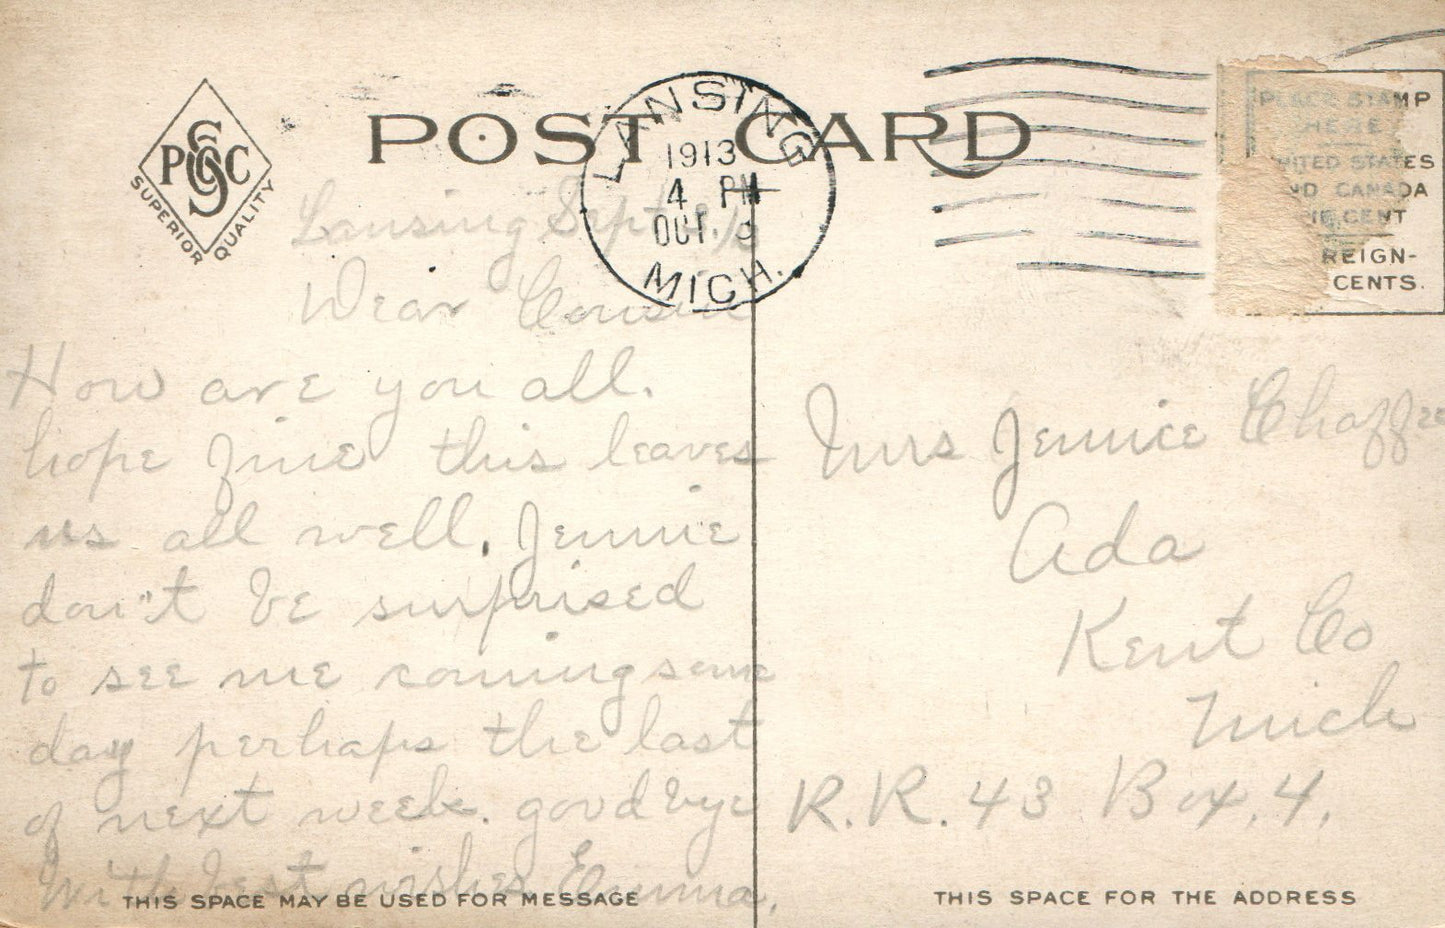 POST CARD
PSCC
SUPERIOR QUALITY
LANSING
1913
4 PM
OCT 9
MICH.
PLACE STAMP
HERE
UNITED STATES
AND CANADA
ONE CENT
REIGN-
CENTS.
Lansing Sept
Dear Cousin
How are you all.
hope fine this leaves
us all well. Jennie
don't be surprised
to see me coming some
day perhaps the last
of next week. good bye
With best wishes Emma.
THIS SPACE MAY BE USED FOR MESSAGE
Mrs Jennie Chaffee
Ada
Kent Co
Mich
R.R. 43 Box. 4.
THIS SPACE FOR THE ADDRESS